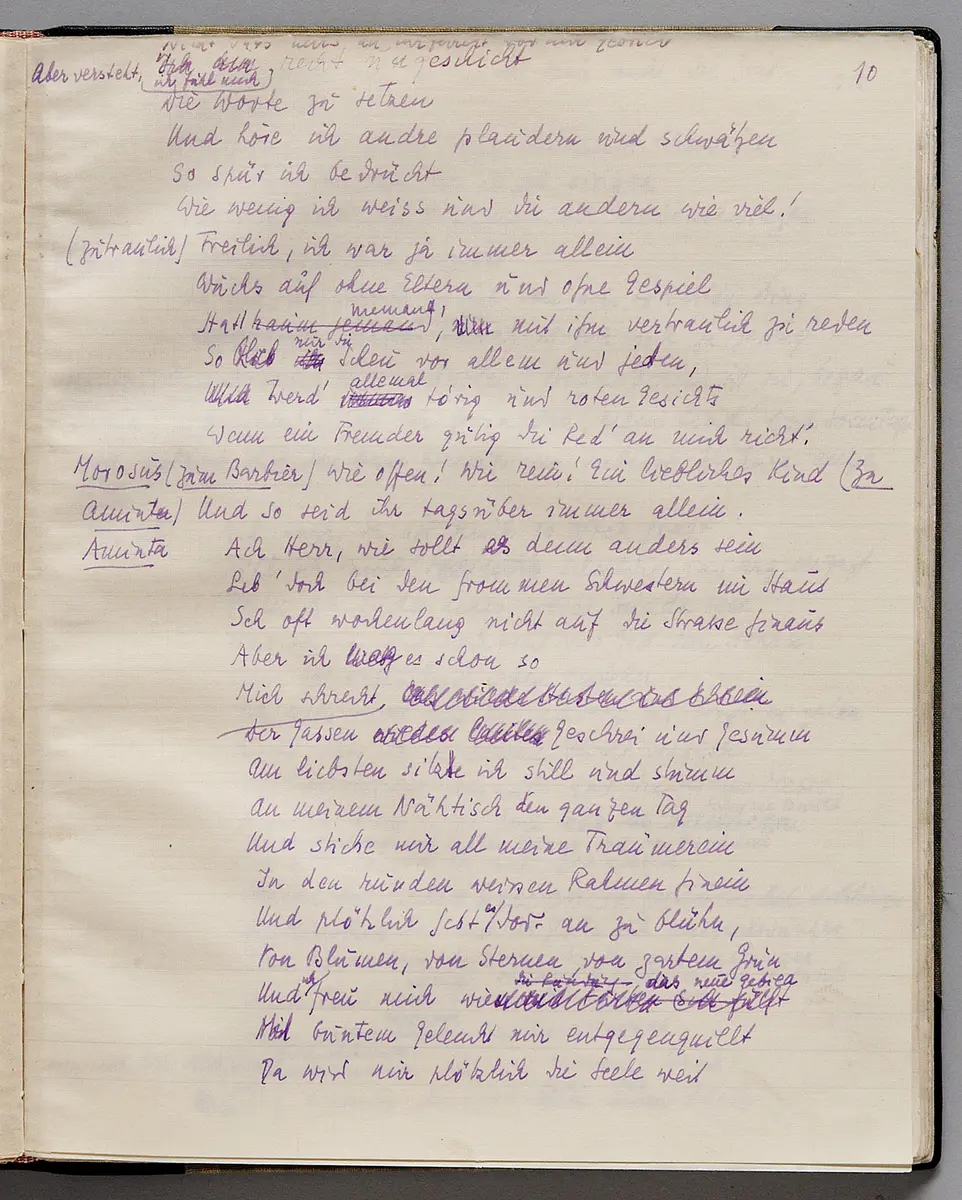 10
Aber versteht, ich fühl mich recht ungeschickt
Die Worte zu setzen
Und höre ich andre plaudern und schwätzen
So spür ich bedrückt
Wie wenig ich weiss und die andern wie viel!
(zutraulich) Freilich, ich war ja immer allein
Wuchs auf ohne Eltern und ohne Gespiel
Hatt kaum jemand niemand, mit ihm vertraulich zu reden
So blieb ich nur die Scheu vor allem und jeden,
Und Werd' allemal törig und roten Gesichts
Wenn ein Fremder gütig die Red' an mich richt'.
Morosus (zum Barbier) Wie offen! Wie rein! Ein liebliches Kind (Zu
Aminta) Und so seid ihr tagsüber immer allein.
Aminta Ach Herr, wie sollt es denn anders sein
Leb' doch bei den frommen Schwestern im Haus
Seh oft wochenlang nicht auf die Strasse hinaus
Aber ich mag es schon so
Mich schreckt,
Der Gassen Geschrei und Gesumm
Am liebsten sitze ich still und stumm
An meinem Nähtisch den ganzen Tag
Und sticke mir all meine Träumerein
In den runden weissen Rahmen hinein
Und plötzlich hebt es dort an zu blühn,
Von Blumen, von Sternen, von zartem Grün
Und ich freu mich wie das neue Gebild
Mit buntem Geleucht mir entgegenquillt
Da wird mir plötzlich die Seele weit